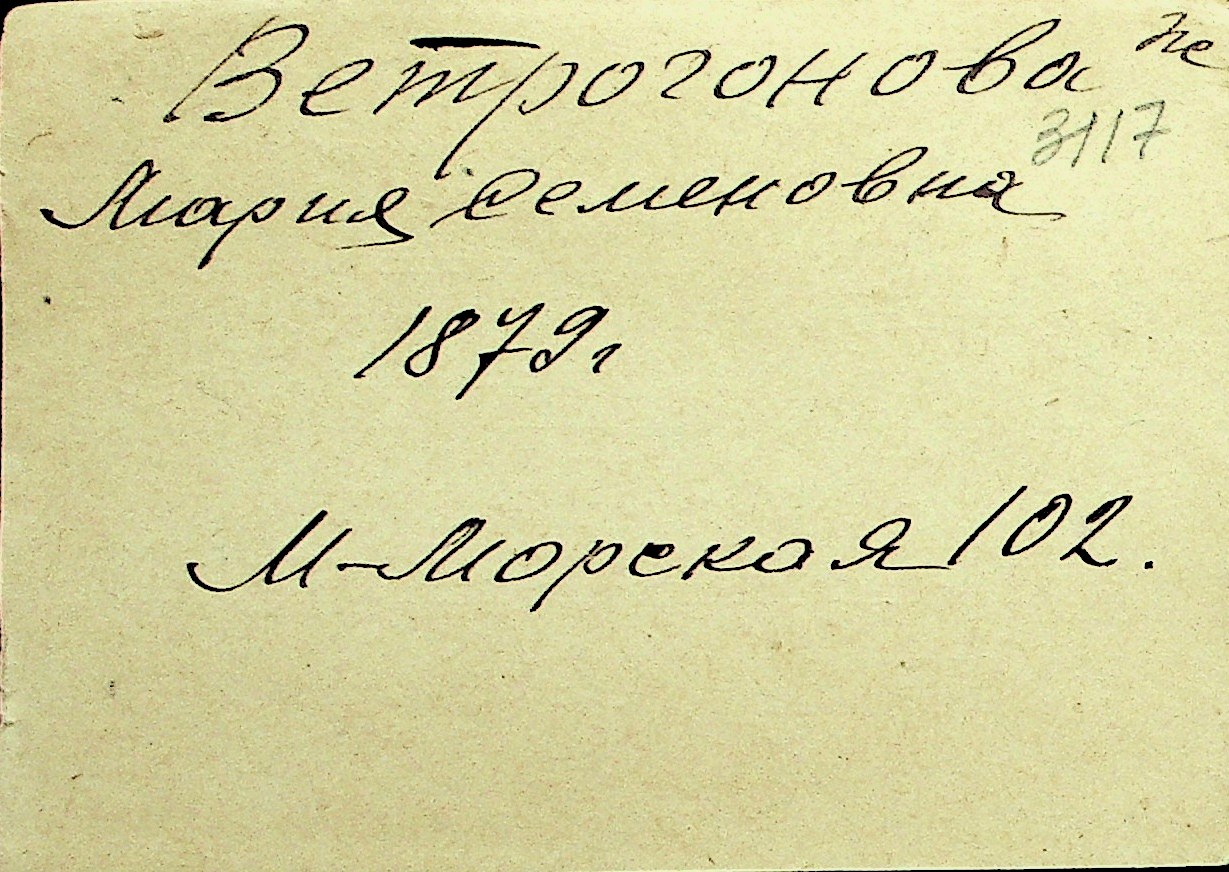 Ветрогонова
3117
Мария Семеновна
1879г
М-Морская 102.